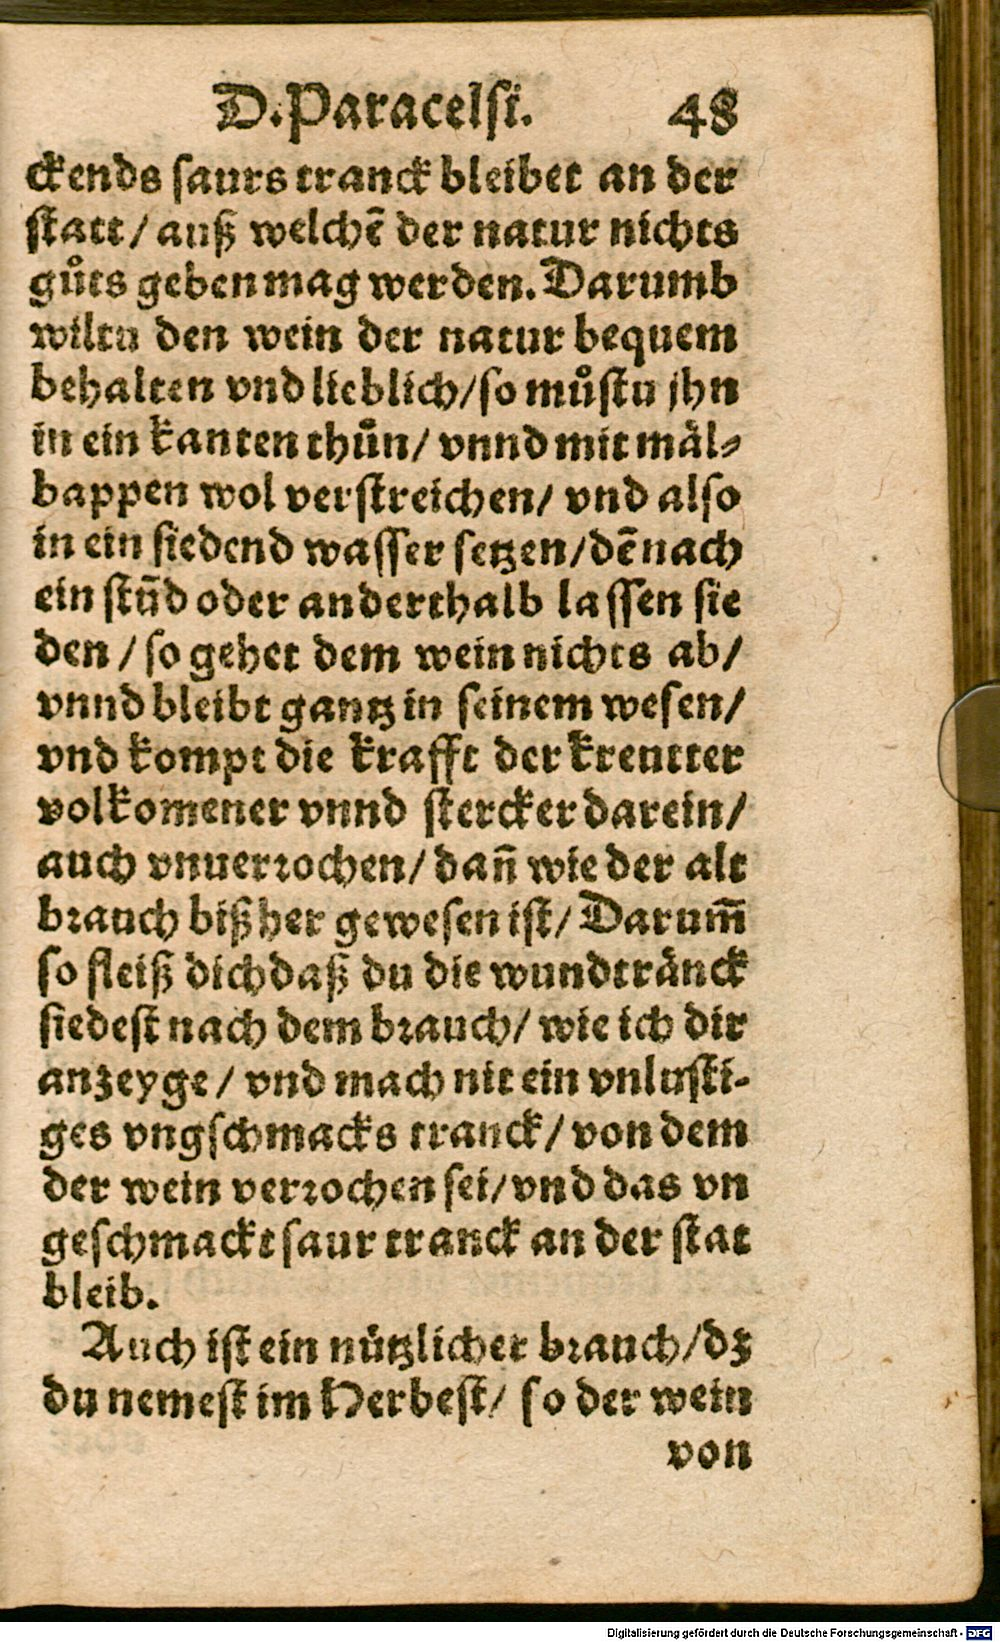 D. Paracelsi. 48
ckends saurs tranck bleibet an der
statt / auß welchē der natur nichts
gůts geben mag werden. Darumb
wiltu den wein der natur bequem
behalten vnd lieblich / so můstu jhn
in ein kanten thůn / vnnd mit mäl⸗
bappen wol verstreichen / vnd also
in ein siedend wasser setzen / dēnach
ein stūd oder anderthalb lassen sie
den / so gehet dem wein nichts ab /
vnnd bleibt gantz in seinem wesen /
vnd kompt die krafft der kreutter
volkomener vnnd stercker darein /
auch vnuerrochen / dan̄ wie der alt
brauch bißher gewesen ist / Darum̄
so fleiß dich daß du die wundtränck
siedest nach dem brauch / wie ich dir
anzeyge / vnd mach nit ein vnlusti-
ges vngschmacks tranck / von dem
der wein verrochen sei / vnd das vn
geschmackt saur tranck an der stat
bleib.
Auch ist ein nützlicher brauch / dz
du nemest im Herbest / so der wein
von
Digitalisierung gefördert durch die Deutsche Forschungsgemeinschaft - DFG